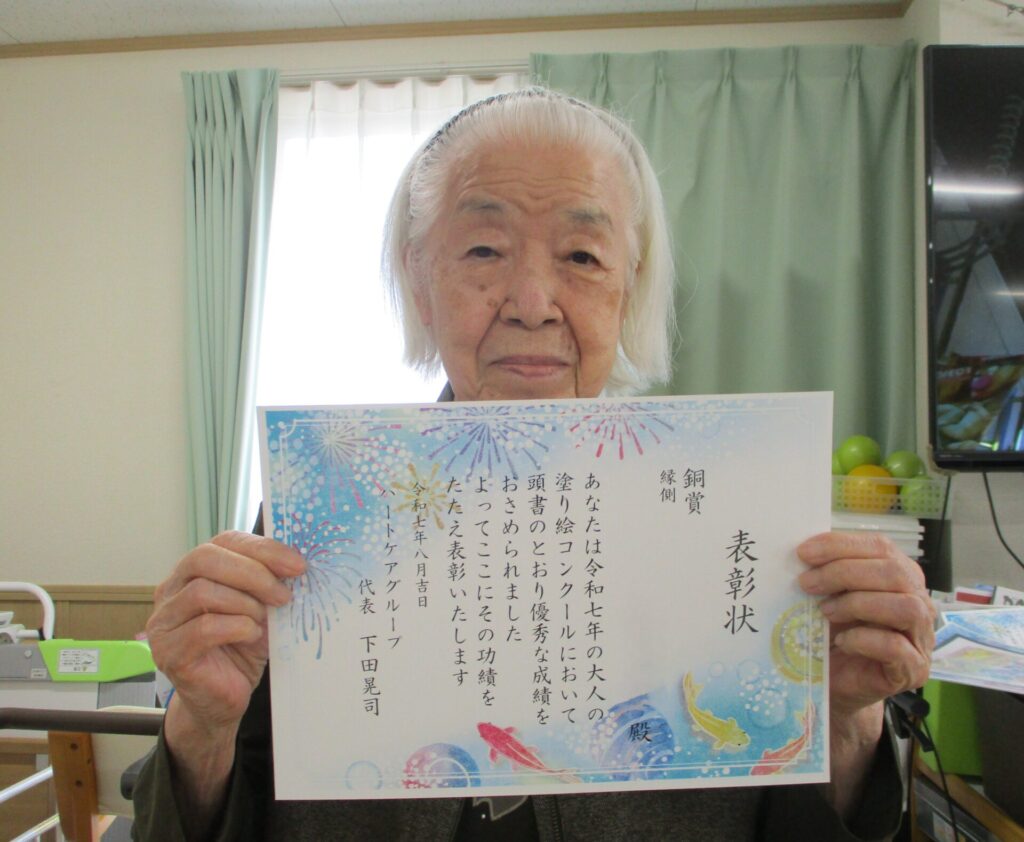 表彰状
銅賞
縁側
殿
あなたは令和七年の大人の
塗り絵コンクールにおいて
頭書のとおり優秀な成績を
おさめられました
よってここにその功績を
たたえ表彰いたします
令和七年八月吉日
ハートケアグループ
代表 下田晃司